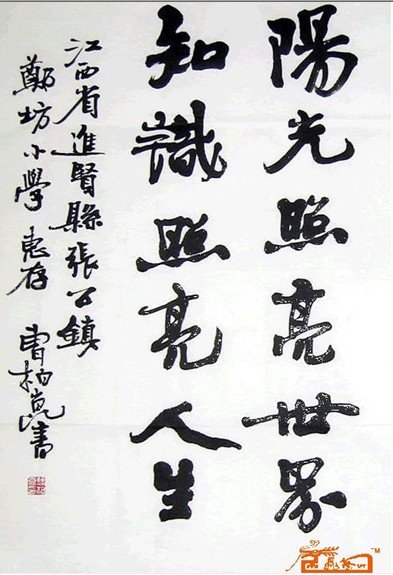 陽光照亮世界
知識照亮人生
江西省進賢縣張公鎮
鄭坊小學惠存
曹柏崑書